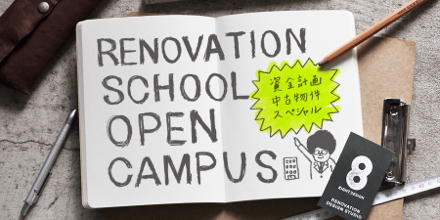 RENOVATION
SCHOOL
OPEN
CAMPUS
資金計画
中古物件
スペシャル
8
EIGHT DESIGN
RENOVATION
DESIGN STUDIO